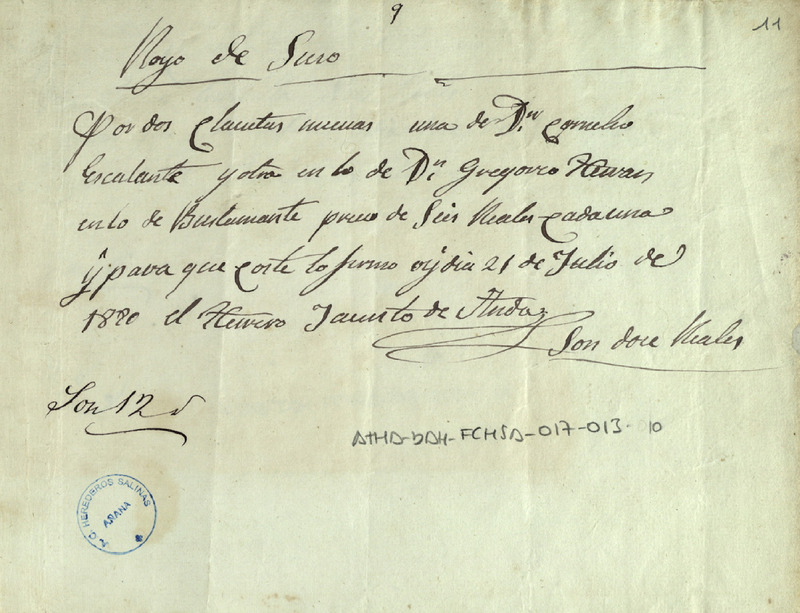 9
11
Royo de Suso
Por dos Clavetas nuevas una de Dn. Cornelio
Escalante y otra en lo de Dn. Gregorio Herran
en lo de Bustamante precio de Seis Reales Cada una
y para que Coste lo firmo oy dia 21 de Julio de
1820 el Herrero Jacinto de Andaz
Son doce Reales
Son 12 r
ATHA-DAH-FCHSA-017-013-10
A. C. HEREDEROS SALINAS
AÑANA